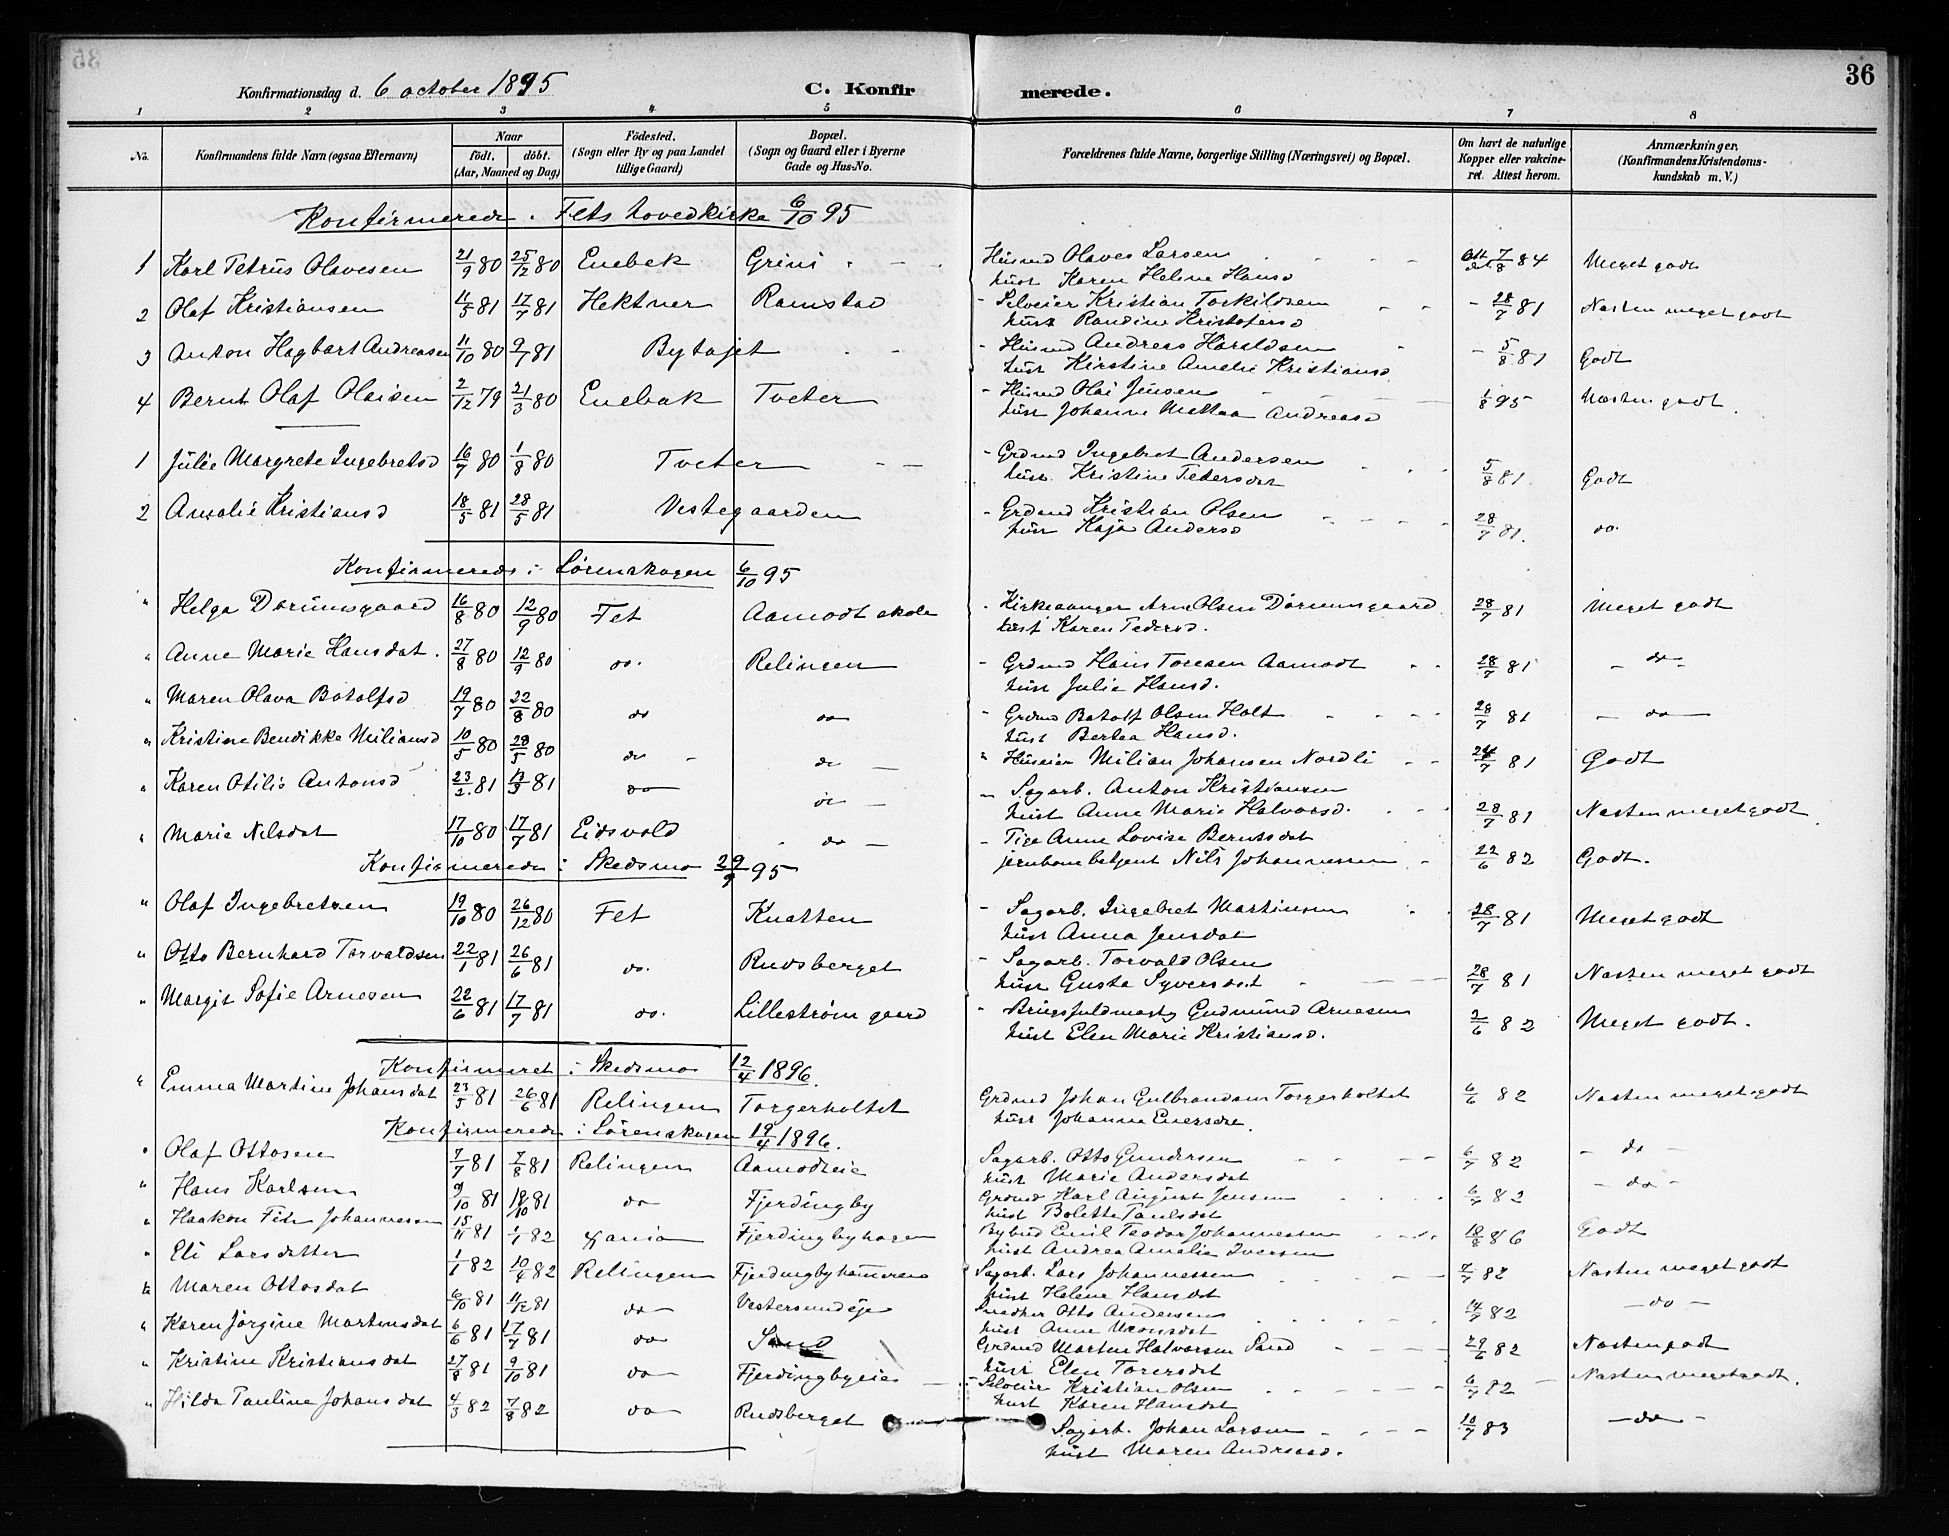 36
Konfirmationsdag d. 6 october 1895 C. Konfirmerede.
1 2 3 4 5 6 7 8
No. Konfirmandens fulde Navn (ogsaa Efternavn) Naar födt. döbt. (Aar, Maaned og Dag) Födested. (Sogn eller By og paa Landet tillige Gaard) Bopæl. (Sogn og Gaard eller i Byerne Gade og Hus-No. Forældrenes fulde Navne, borgerlige Stilling (Næringsvei) og Bopæl. Om havt de naturlige Kopper eller vakcineret. Attest herom. Anmærkninger. (Konfirmandens Kristendomskundskab m. V.)
Konfirmerede i Fets hovedkirke 6/10 95
1 Karl Petrus Olavesen 21/9 80 25/12 80 Enebak Grini Husmd Olaves Larsen 7/8 84 Meget godt
hust Karen Helene Hansd
2 Olaf Kristiansen 11/5 81 17/7 81 Hektner Ramstad - Selveier Kristian Torkildsen - 28/7 81 Næsten meget godt
hust Randine Kristofersd
3 Anton Hagbart Andreasen 11/10 80 9/7 81 Bytajet - Husmd Andreas Haraldsen - 5/8 81 Godt
hust Kirstine Amelie Kristiansd
4 Bernt Olaf Olaisen 2/12 79 21/3 80 Enebak Tveter - Husmd Olai Jensen 1/8 95 Næsten godt
hust Johanne Mettea Andreasd
1 Julie Margrete Ingebretsd 16/7 80 1/8 80 Tveter - Grdmd Ingebret Andersen 5/8 81 Godt
hust Kristine Pedersdat
2 Amalie Kristiansd 18/5 81 28/5 81 Vestegaarden - Grdmd Kristian Olsen 28/7 81 do.
hust Kaja Andersd
Konfirmerede i Lörenskogen 6/10 95
" Helga Dorumsgaard 16/8 80 12/9 80 Fet Aamodt skole - Kirkesanger Arne Olsen Dorumsgaard 28/7 81 Meget godt
hust Karen Pedersd.
" Anne Marie Hansdat. 27/8 80 12/9 80 do. Relingen - Grdmd Hans Toresen Aamodt 28/7 81 - do -
hust Julie Hansd.
" Maren Olava Botolfsd 19/7 80 22/8 80 do do - Grdmd Botolf Olsen Holt 28/7 81 - do -
hust Bertea Hansd.
" Kristine Bendikke Miliansd 10/5 80 28/5 80 do - do - " Huseier Milian Johansen Nordli 24/7 81 Godt
" Karen Otilie Antonsd 23/2 81 13/3 81 do do - - Sagarb. Anton Kristiansen
hust Anne Marie Halvorsd. 28/7 81 Næsten meget godt
" Marie Nilsdat 17/10 80 17/7 81 Eidsvold do - - Pige Anne Lovise Berntsdat
jernbanebetjent Nils Johannessen 22/6 82 Godt.
Konfirmerede i Skedsmo 29/9 95
" Olaf Ingebretsen 19/10 80 26/12 80 Fet Knatten - Sagarb. Ingebret Martinsen 28/7 81 Meget godt
hust Anna Jensdat
" Otto Bernhard Torvaldsen 22/1 81 26/6 81 do. Rudsberget - Sagarb. Torvald Olsen
hust Gusta Syversdat 28/7 81 Næsten meget godt
" Margit Sofie Arnesen 22/6 81 17/7 81 do. Lilleströmgaard - Brugsfuldmægtig Gudmund Arnesen 2/6 82 Meget godt.
hust Elen Marie Kristiansd.
Konfirmeret i Skedsmo 12/4 1896.
" Emma Martine Johansdat 23/5 81 26/6 81 Relingen Torgerholtet Grdmd Johan Gulbrandsen Torgerholtet 6/6 82 Næsten meget godt
hust Johanne Eversdr.
Konfirmerede i Lörenskogen 19/4 1896.
" Olaf Ottosen 7/7 81 7/8 81 Relingen Aamodteie Sagarb. Otto Gundersen 6/7 82 - do -
hust Marie Andersdat
" Hans Karlsen 9/10 81 18/10 81 do Fjerdingby Grdmd Karl August Jensen 6/7 82 - do -
hust Bolette Paulsdat
" Haakon Johannessen 15/11 81 1/1 82 Xania Fjerdingbyhagen Bybud Emil Teodor Johannessen 18/8 86 Godt
hust Andrea Amalie Iversen
" Eli Larsdatter 1/1 82 10/4 82 Relingen Fjerdingbyhammeren Sagarb. Lars Johannessen 7/7 82 Næsten meget godt
hust Helene Hansdat
" Maren Ottosdat 6/10 81 11/12 81 do Vestersundeje Snedker Otto Andersen 14/7 82 - do -
hust Anne Monsdat
" Karen Jörgine Martinsdat 6/6 81 17/7 81 do Sand Grdmd Martin Halvorsen Sand 29/6 82 Næsten godt
hust Elen Toresdat
" Kristine Kristiansdat 27/8 81 9/10 81 do Fjerdingbyeie - Selveier Kristian Olsen 6/7 82 Næsten meget godt.
hust Karen Hansdat
" Hilda Pauline Johansdat 4/3 82 7/8 82 do Rudsberget Sagarb. Johan Larsen 10/7 83 - do -
hust Maren Andreasd.